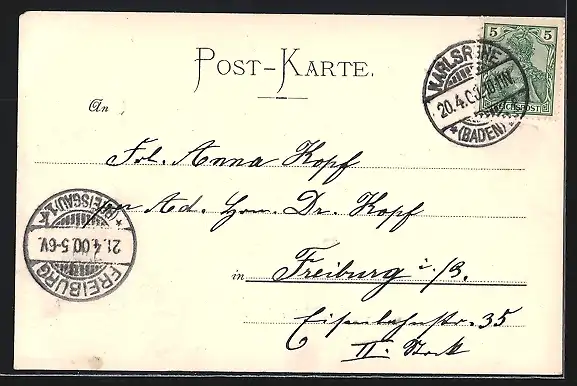 POST-KARTE.
5 5
REICHSPOST
KARLSRUHE
20.4.00.
*(BADEN)
An
Frl. Anna Kopf
per Ad. Hrn. Dr. Kopf
in Freiburg i/B.
Eisenbahnstr. 35
II. Stock
FREIBURG
21.4.00.5-6V.
*(BREISGAU)1K